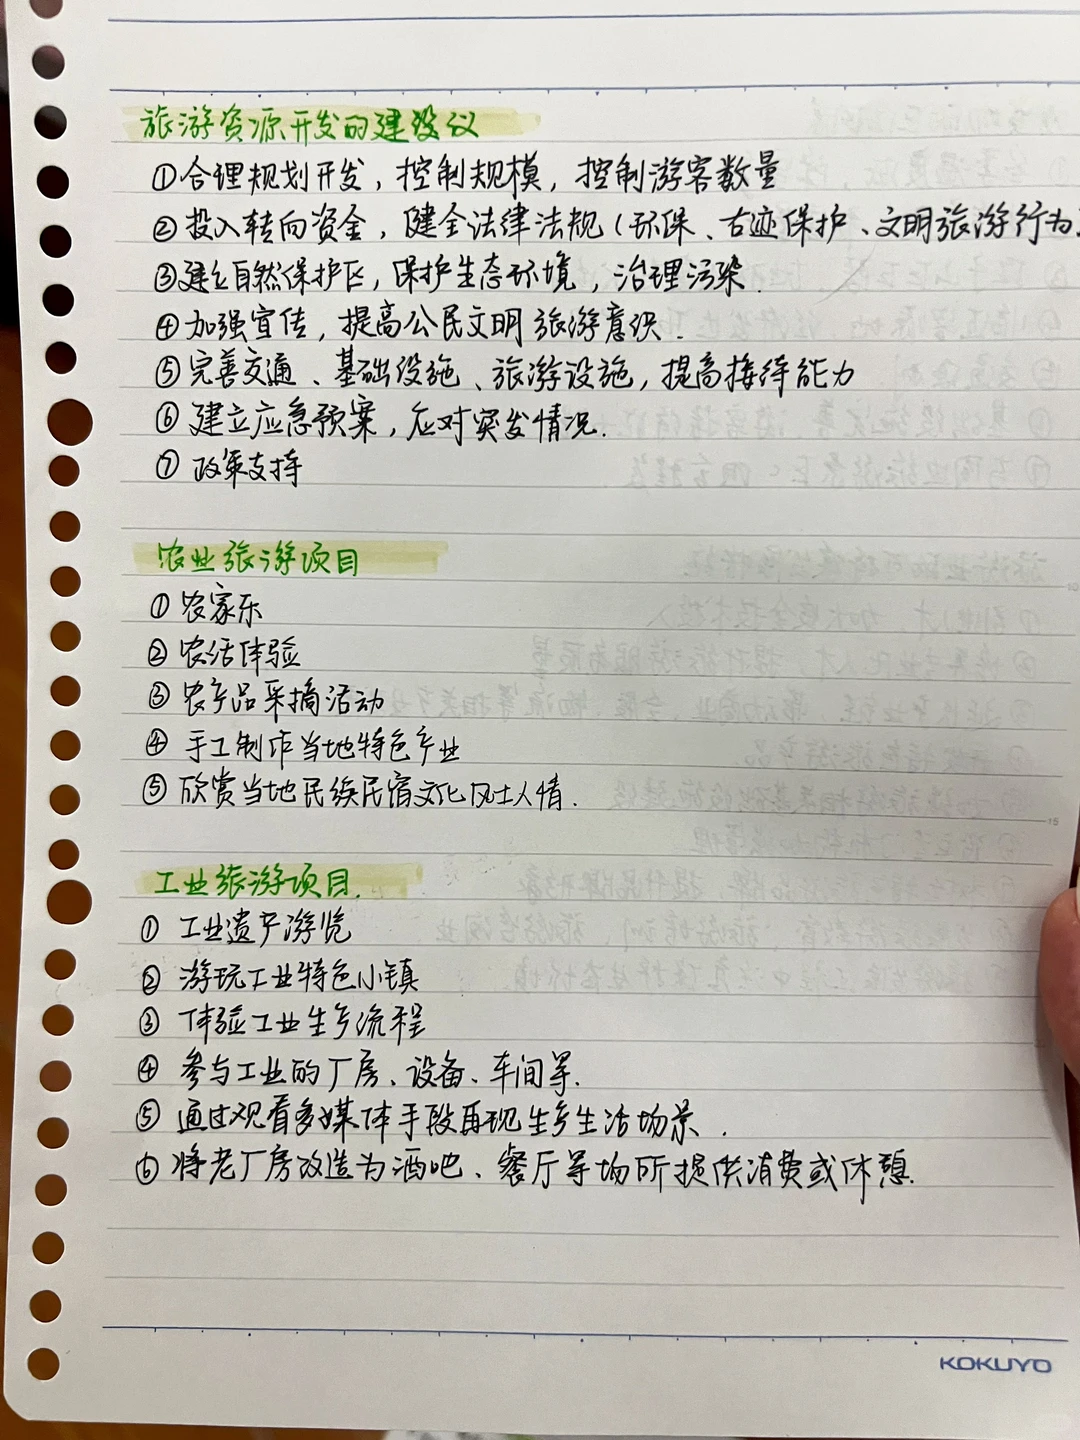 旅游资源开发的建设议
①合理规划开发，控制规模，控制游客数量
②投入转向资金，健全法律法规（环保、古迹保护、文明旅游行为
③建立自然保护区，保护生态环境，治理污染.
④加强宣传，提高公民文明旅游意识.
⑤完善交通、基础设施、旅游设施，提高接待能力
⑥建立应急预案，应对突发情况.
⑦政策支持
农业旅游项目
①农家乐
②农活体验
③农产品采摘活动
④手工制作当地特色产业
⑤欣赏当地民族民宿文化风土人情.
工业旅游项目.
①工业遗产游览
②游玩工业特色小镇
③体验工业生产流程
④参与工业的厂房、设备、车间等.
⑤通过观看多媒体手段再现生产生活场景.
⑥将老厂房改造为酒吧、餐厅等场所提供消费或休憩.
KOKUYO